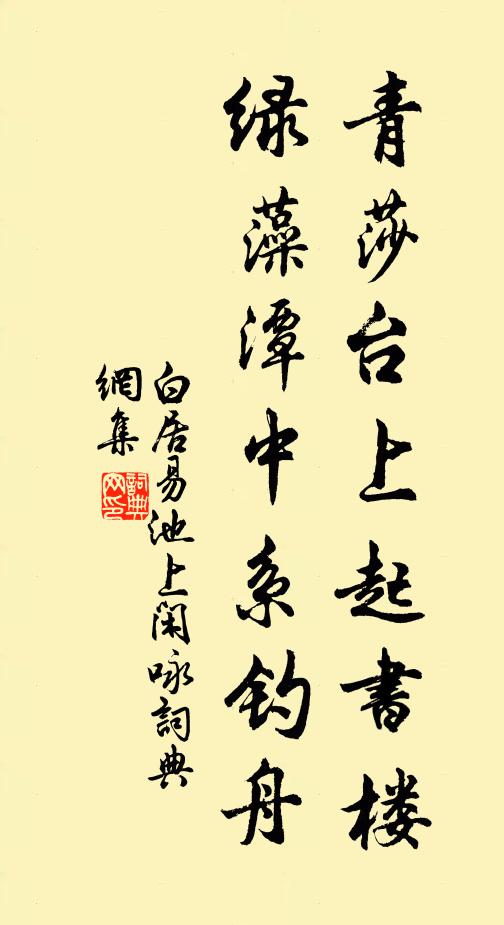 青莎台上起書楼
绿藻潭中系钓舟
白居易池上闲咏詞典
網集
詞典
网印